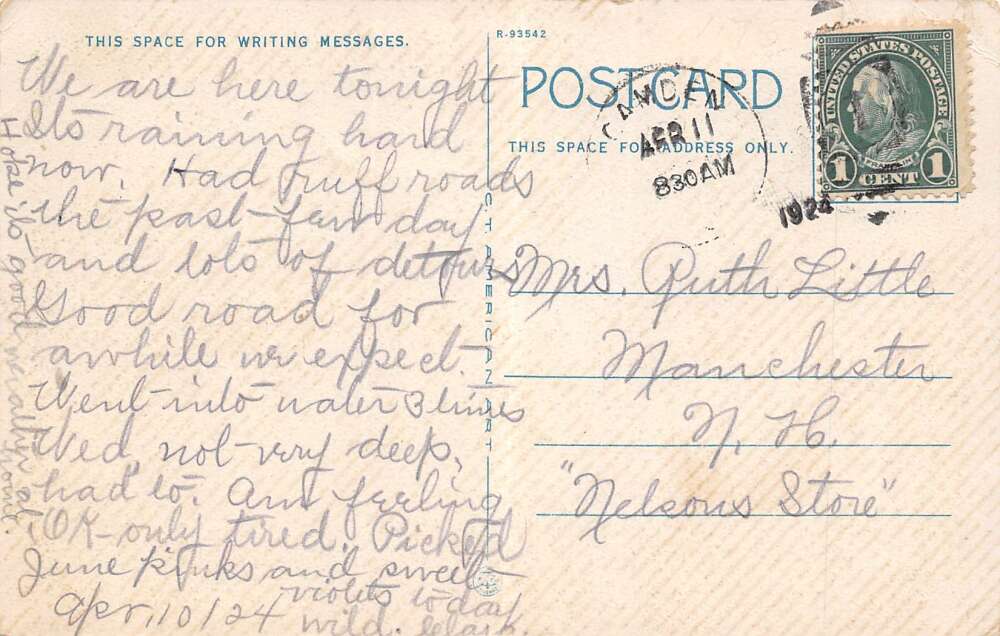 THIS SPACE FOR WRITING MESSAGES.
We are here tonight
Its raining hard
now. Had ruff roads
the past few day
and lots of detours
Good road for
awhile we expect.
Went into water 3 times
Wed, not very deep,
had to. Am feeling
OK-only tired. Picked
June pinks and sweet
violets today
Apr, 10/24 wild.
Hope its good really at home.
R-93542
POSTCARD
THIS SPACE FOR ADDRESS ONLY.
C.T. AMERICAN ART
CAMDEN
APR 11
830AM
1924
UNITED STATES POSTAGE
FRANKLIN
1 CENT 1
Mrs. Ruth Little
Manchester
N. H.
"Nelsons Store"